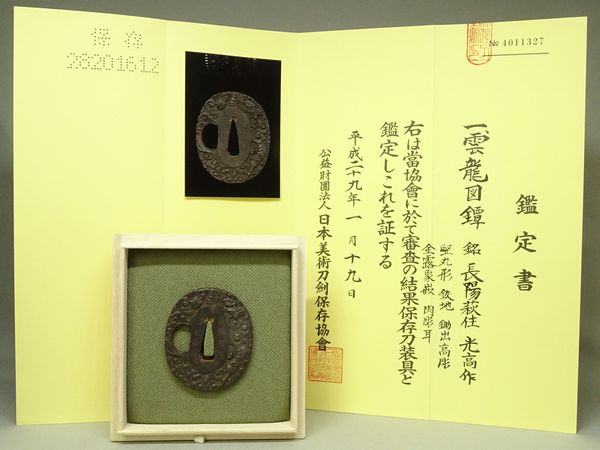 鑑定書
№ 4011327
一、雲龍図鐔 銘 長陽萩住 光高作
竪丸形 鉄地 鋤出高彫
金露象嵌 肉彫耳
右は當協會に於て審査の結果保存刀装具と
鑑定しこれを証する
平成二十九年一月十九日
公益財團法人 日本美術刀劍保存協會
保存
28201612